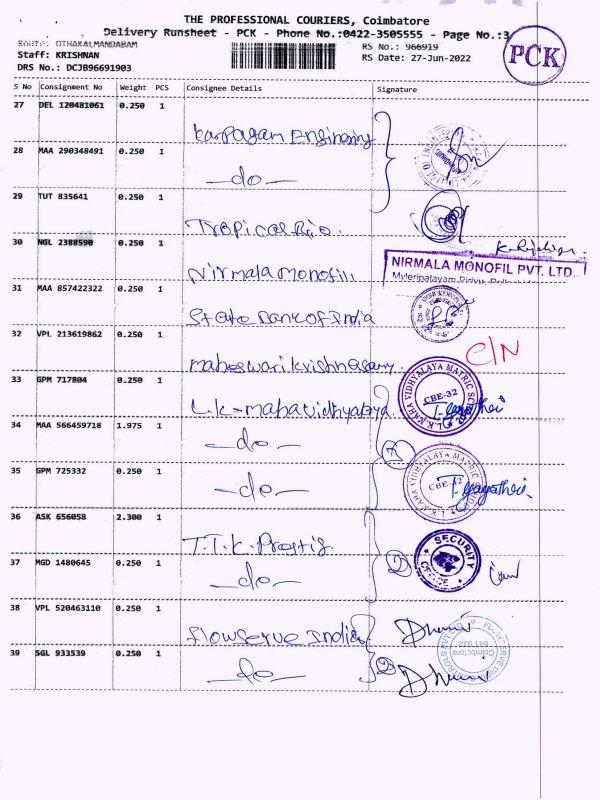 THE PROFESSIONAL COURIERS, Coimbatore
Delivery Runsheet - PCK - Phone No.:0422-3505555 - Page No.:3
PCK
Route: OTHAKALMANDABAM
RS No.: 966919
Staff: KRISHNAN
RS Date: 27-Jun-2022
DRS No.: DCJB96691903
S No Consignment No Weight PCS Consignee Details Signature
27 DEL 120481061 0.250 1
Karpagam Engineering
28 MAA 290348491 0.250 1
-do-
29 TUT 835641 0.250 1
Tropical Bio
30 NGL 2388590 0.250 1
Nirmala monofill
NIRMALA MONOFIL PVT. LTD.
31 MAA 857422322 0.250 1
State Bank of India
32 VPL 213619862 0.250 1
maheswari krishnasamy.
C/N
33 GPM 717804 0.250 1
L.K-mahavidhyalaya
L.K. MAHA VIDHYALAYA MATRIC SC
CBE-32
T. Gayathri
34 MAA 566459718 1.975 1
-do-
3
35 GPM 725332 0.250 1
-do-
CBE-32
T. Gayathri
36 ASK 656058 2.300 1
T.T.K. Prostis
SECURITY
OFFICE
37 MGD 1480645 0.250 1
-do-
2
38 VPL 520463110 0.250 1
flowserve India
Coimbatore
641 032
39 SGL 933539 0.250 1
-do-
2